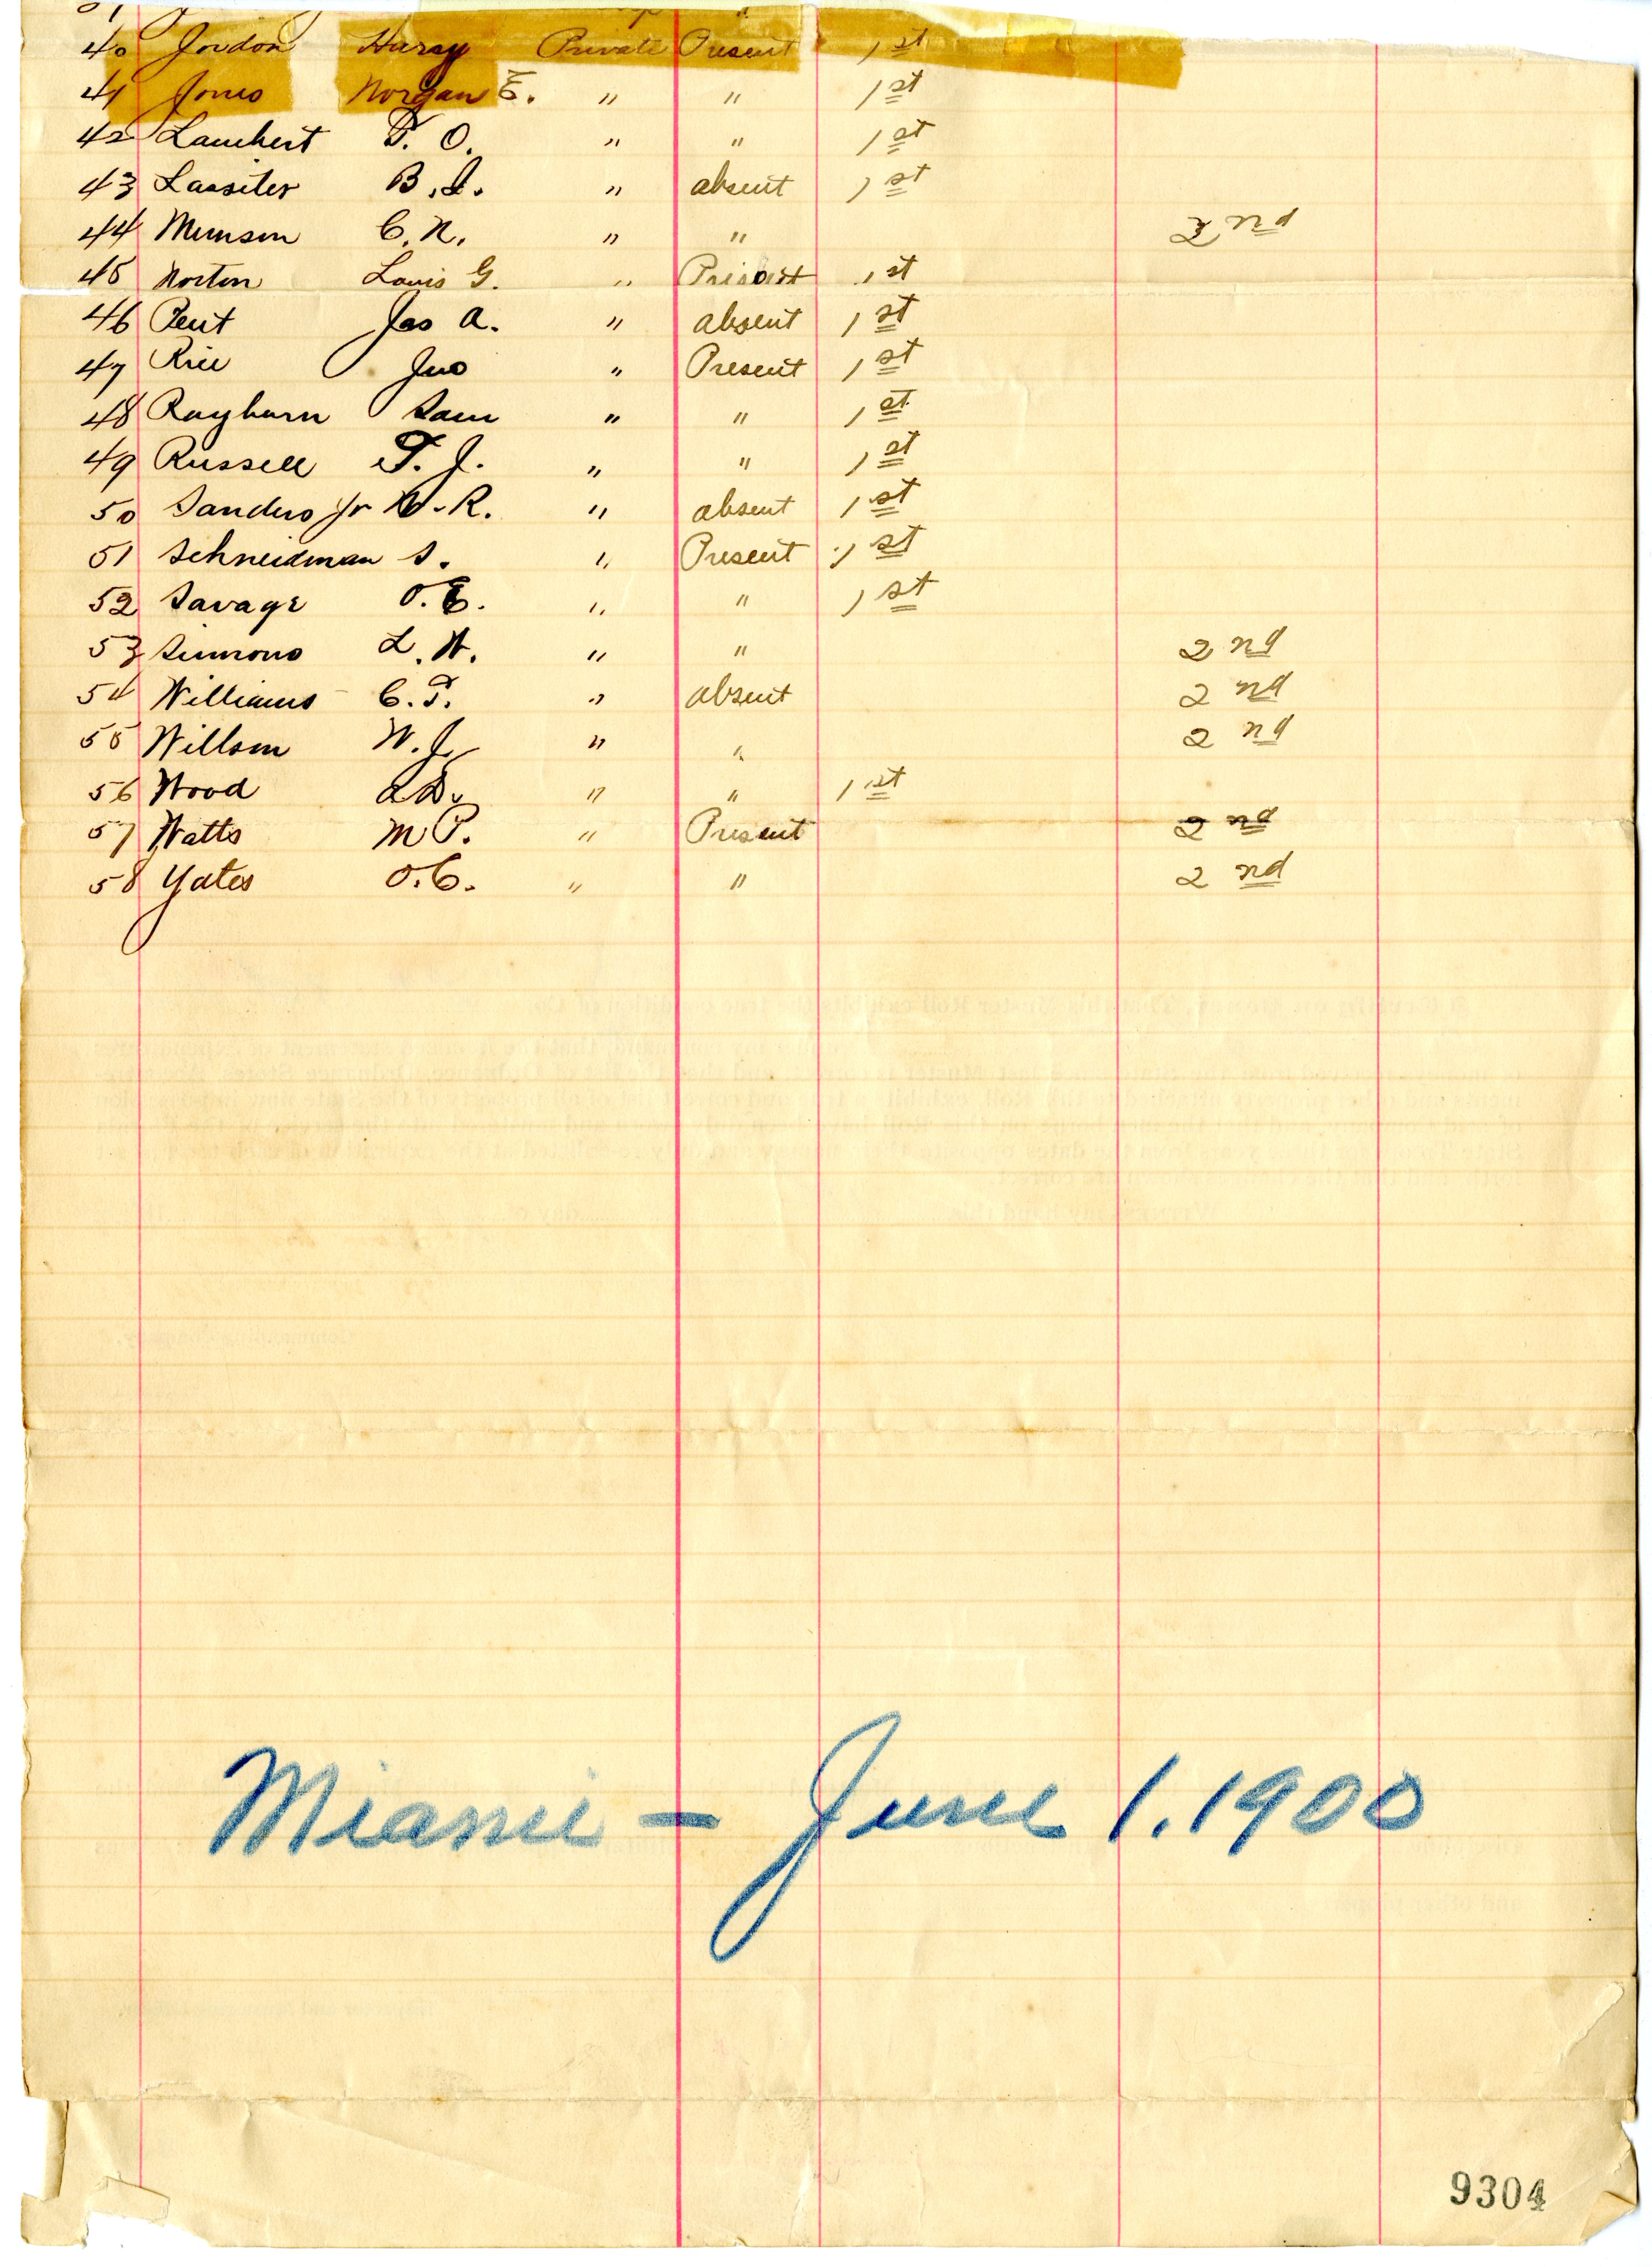 40 Jordon Harry Private Present 1st
41 Jones Morgan E. " " 1st
42 Lambert T. O. " " 1st
43 Lassiter B. I. " absent 1st
44 Munson C. N. " " 2nd
45 Norton Louis G. " Present 1st
46 Pent Jas A. " absent 1st
47 Rice Jno " Present 1st
48 Rayburn Sam " " 1st
49 Russell T. J. " " 1st
50 Sanders Jr W. R. " absent 1st
51 Schneidman S. " Present 1st
52 Savage O. E. " " 1st
53 Simmons L. W. " " 2nd
54 Williams C. T. " absent 2nd
55 Willson W. J. " " 2nd
56 Wood " " 1st
57 Watts M P. " Present 2nd
58 Yates O. C. " " 2nd
Miami - June 1. 1900
9304